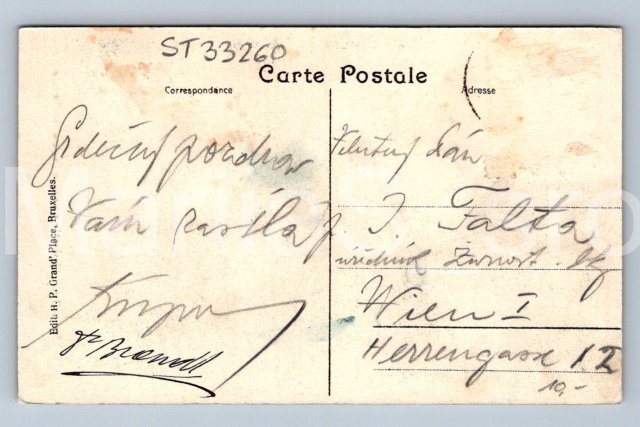 ST33260
Carte Postale
Correspondance
Adresse
Srdečný pozdrav
Vám zasílá
Dr Brandt
Velectěný Pán
J. Falta
úředník Živnost. b.
Wien I
Herrengasse 12
10,-
Edit. H. P. Grand' Place, Bruxelles.